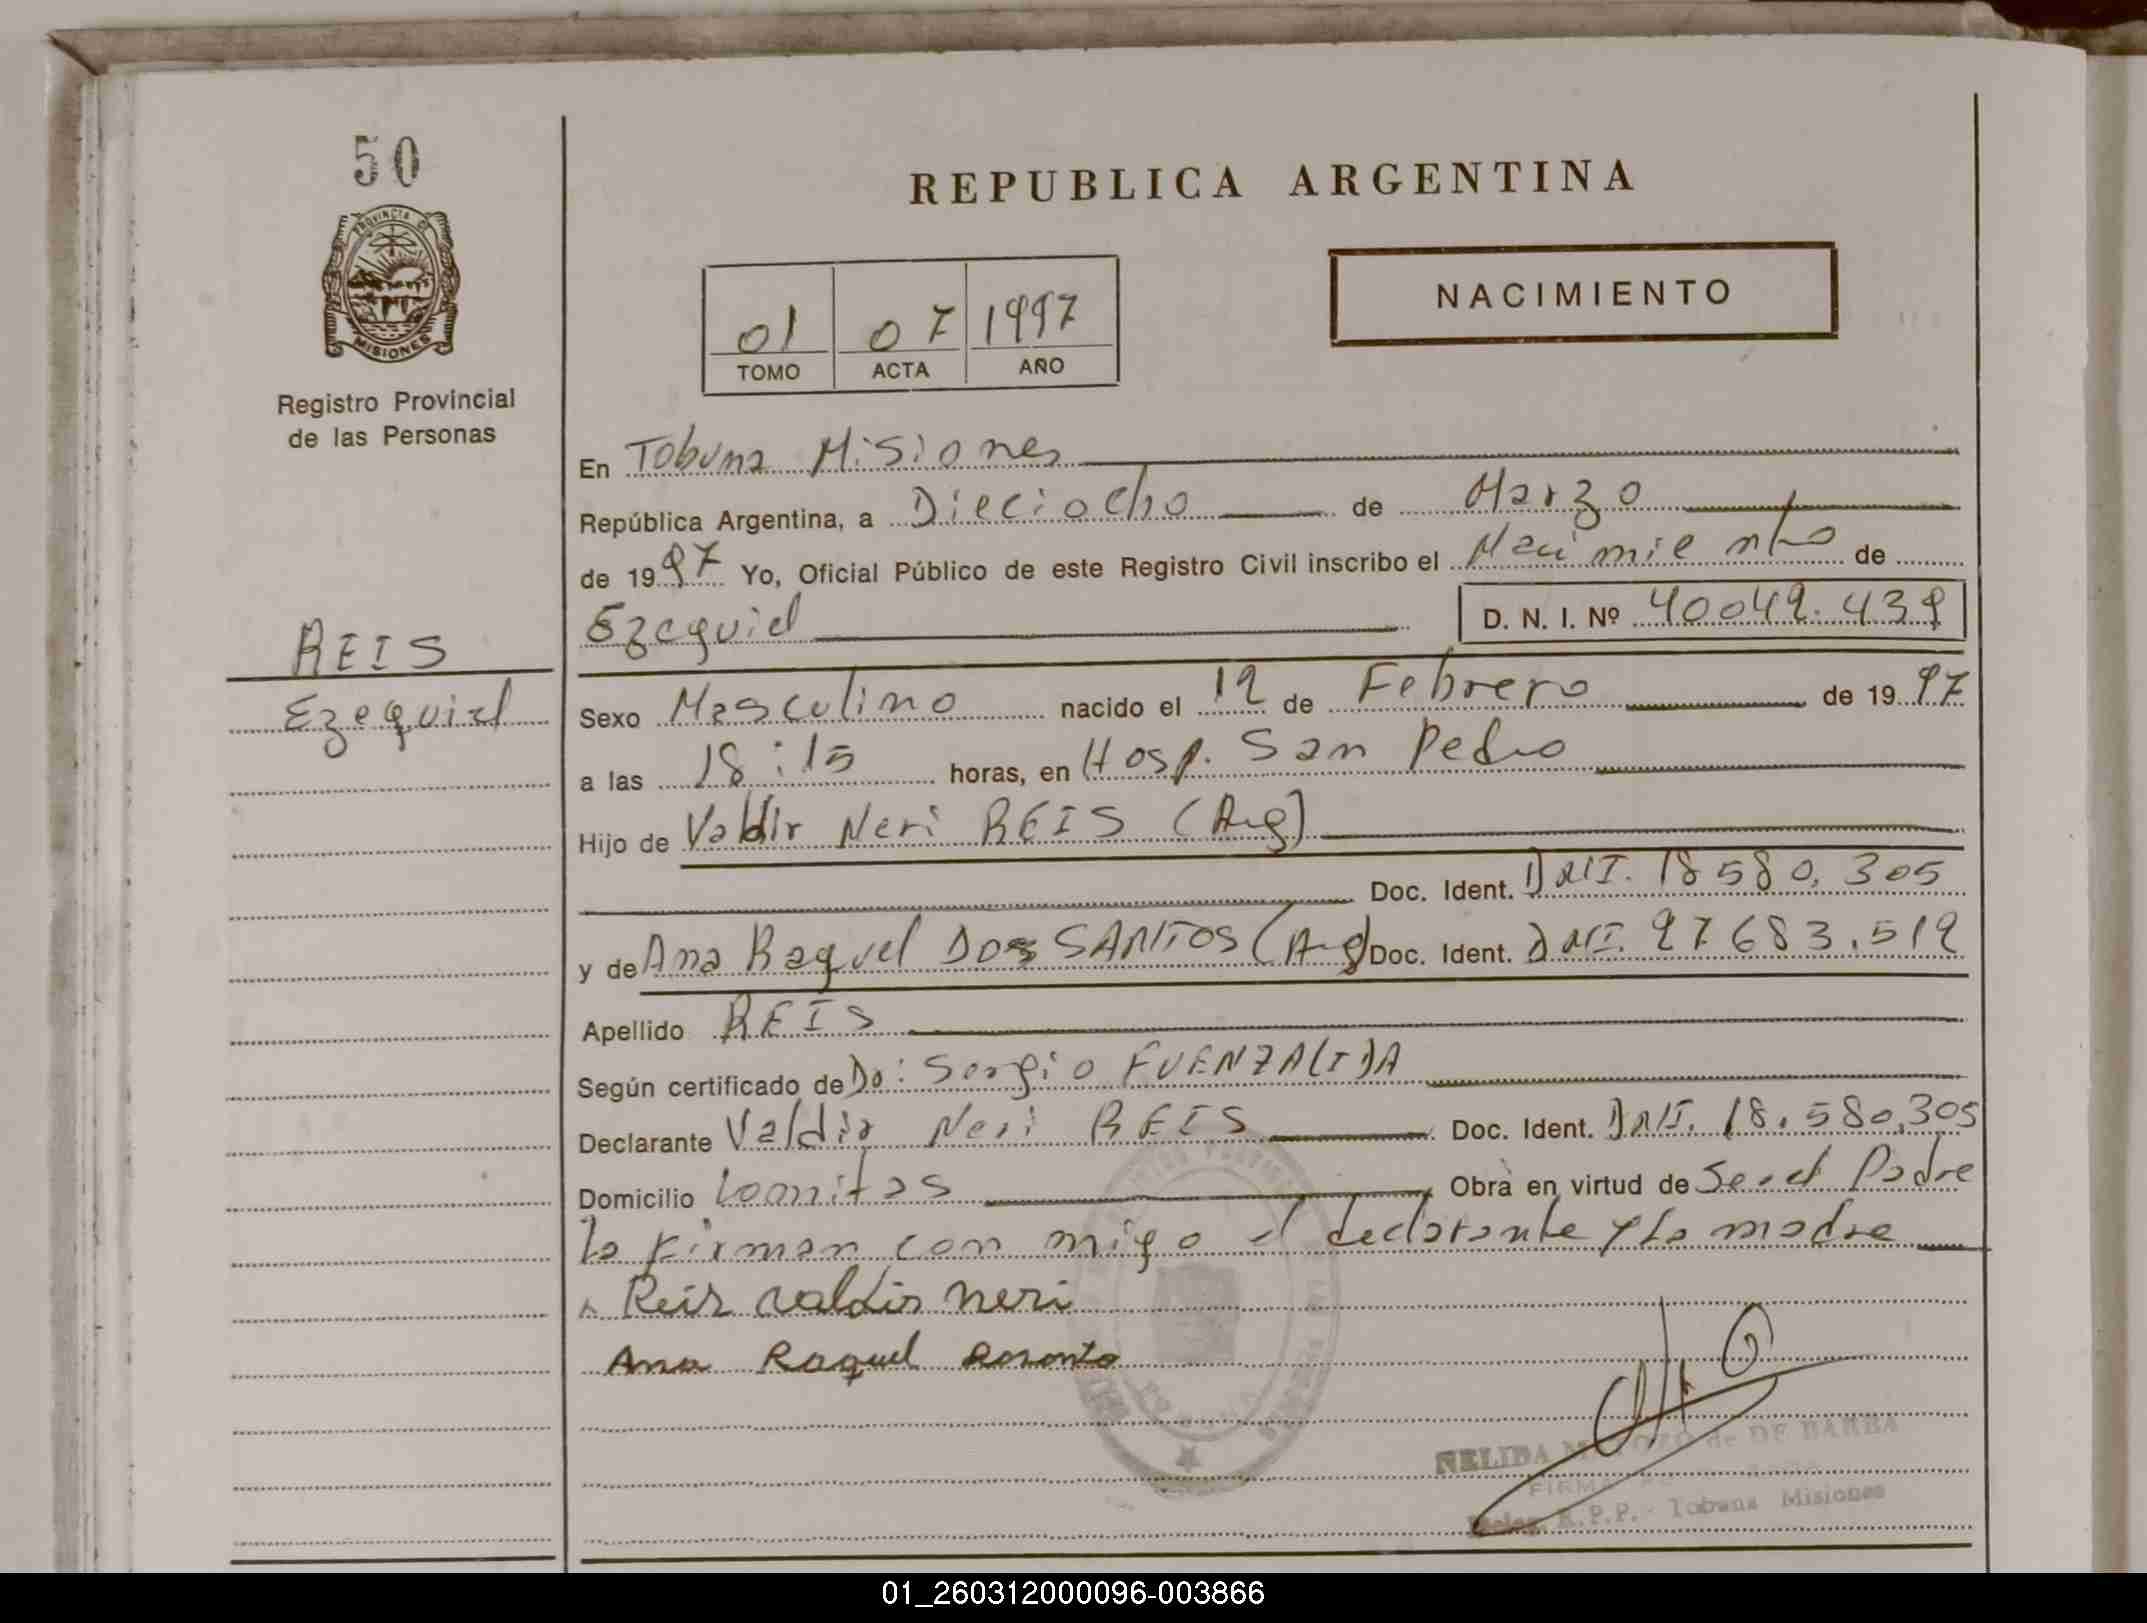 50
PROVINCIA DE
MISIONES
Registro Provincial
de las Personas
REPUBLICA ARGENTINA
01 07 1997
TOMO ACTA AÑO
NACIMIENTO
En Tobuna Misiones
República Argentina, a Dieciocho de Marzo
de 1997 Yo, Oficial Público de este Registro Civil inscribo el Nacimiento de
Ezequiel D. N. I. Nº 40042.439
REIS
Ezequiel
Sexo Masculino nacido el 12 de Febrero de 1997
a las 18:15 horas, en Hosp. San Pedro
Hijo de Valdir Neri REIS (Arg)
Doc. Ident. DNI. 18580.305
y de Ana Raquel DOS SANTOS (Arg) Doc. Ident. DNI. 27683.512
Apellido REIS
Según certificado de Do: Sergio FUENZALIDA
Declarante Valdir Neri REIS Doc. Ident. DNI. 18.580.305
Domicilio Lomitas Obra en virtud de Ser el Padre
La firman con migo el declarante y La madre
Reis valdir neri
Ana Raquel
NELIDA de DE BARBA
R.P.P. - Tobuna Misiones
01_260312000096-003866